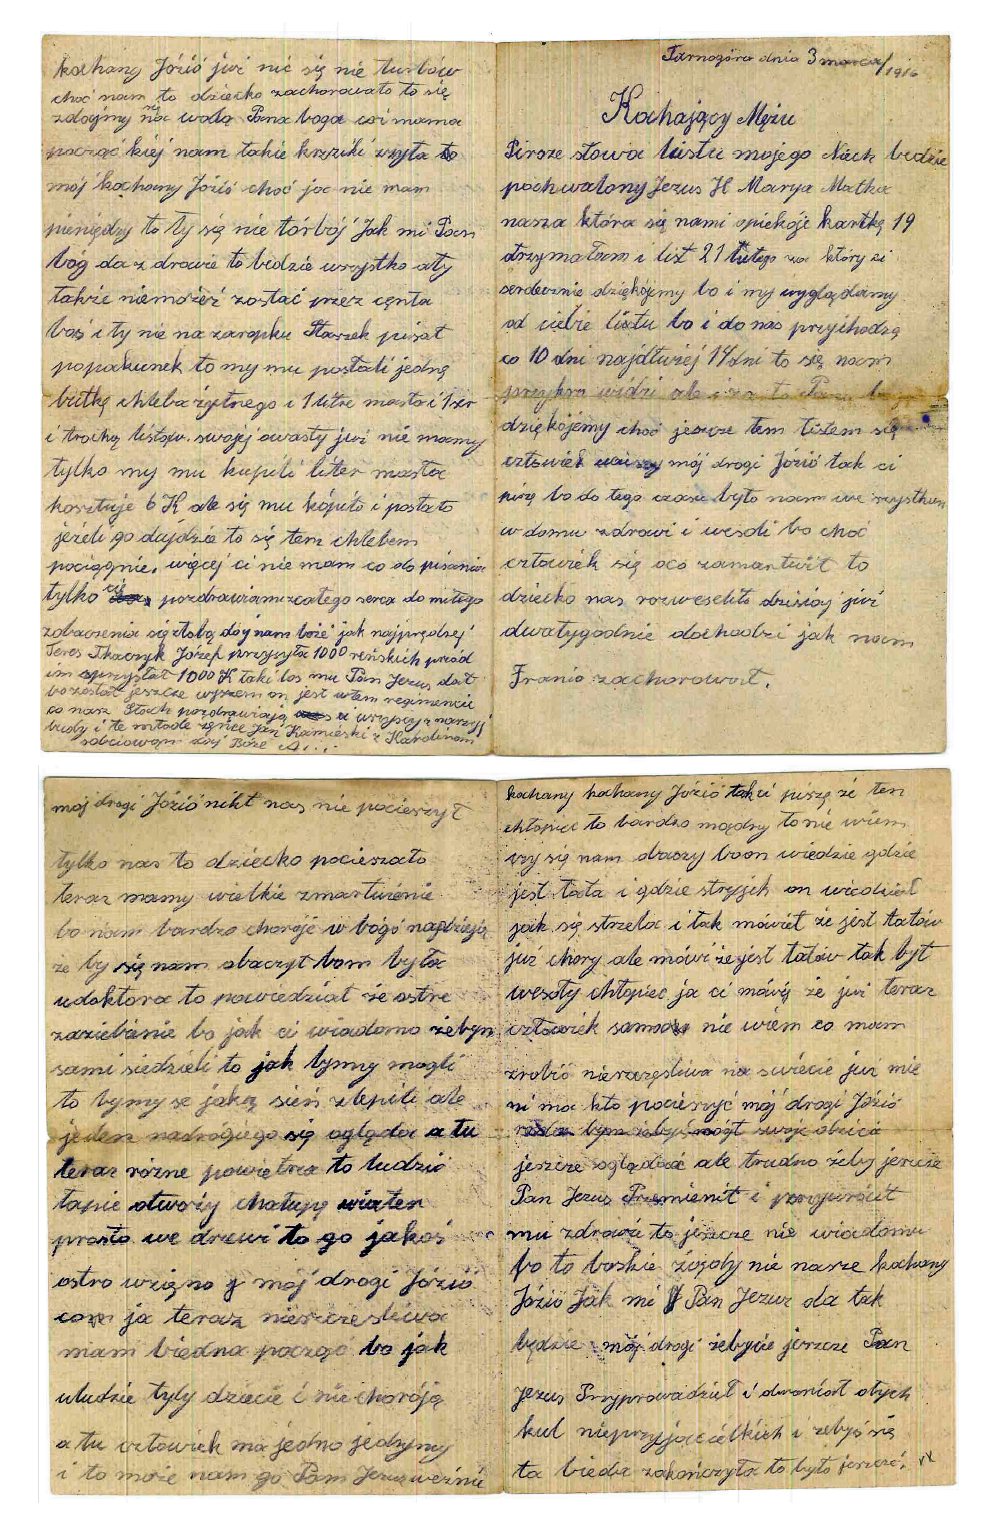 Tarnogóra dnia 3 marca/1916
Kochający Mężu
Pirsze słowa listu mojego Niech bedzie
pochwalony Jezus H Marya Matka
nasza która się nami opiekóje kartkę 19
otrzymałam i list 21 lutego za który ci
serdecznie dziękójemy bo i my wyglądamy
od ciebie listu bo i do nas przyihodzą
co 10 dni najdłużej 14 dni to się nam
przykro widzi ale i za to Panu
dziękójemy choć jescze tem listem się
człowiek mój drogi Józió tak ci
piszę bo do tego czasu było nam we wszystkiem
w domu zdrowi i wesoli bo choć
człowiek się oco zamartwił to
dziecko nas rozweseliło dzisiaj już
dwatygodnie dochodzi jak nam
Franio zachorował.
mój drogi Józió nikt nas nie pocieszył
tylko nas to dziecko pocieszało
teraz mamy wielkie zmartwienie
bo nam bardzo choróje w bógó nadzieją
że by się nam obaczył bom była
udoktora to powiedział że ostre
zaziebinie bo jak ci wiadomo żebym
sami siedzieli to jak bymy mogli
to bymy se jaką sień zlepili ale
jeden nadrógiego się ogląda a tu
teraz rózne powietrza to ludzió
łapie otworzy chałupę wiater
prosto we drzwi to go jakoś
ostro wzięno mój drogi Józió
ja teraz nieszczesliwa
mam biedna począć bo jak
uludzie tyly dziecie i nie choróją
a tu człowiek ma jedno jedzymy
i to może nam go Pam Jezus weźnie
kochany kochany Józió tak ci piszę że ten
chłopiec to bardzo mądry to nie wiem
czy się nam obaczy boon wiedzie gdzie
jest tata i gdzie stryjek on wiedział
jak się strzela i tak mówił że jest tatów
już chory ale mówi że jest tatów tak był
wesoły chłopiec ja ci mówię że już teraz
człowiek sam nie wiem co mam
zrobić nieszczęsliwa na swiecie już mie
ni ma kto pocieszyć mój drogi Józió
bym żebyś mógł swoje dziecie
jeszcze oglądać ale trudno żeby jeszcze
Pan Jezus Przemienił i przywrócił
mu zdrowie to jeszcze nie wiadomo
bo to boskie żęądy nie nasze kochany
Józió Jak mi Pan Jezus da tak
będzie mój drogi żebycie jeszcze Pan
Jezus Przyprowadził i obroniał otych
kul nieprzyjacielkich i żebyś się
ta bieda zakończyła to było jeszcze.
kochany Józió już nic się nie turbów
choć nam to dziecko zachorowało to się
zdajmy na wolą Pana boga coż mama
począć kiej nam takie krzyżiki zsyła to
mój kochany Józió choć ja nie mam
pieniędzy to ty się nie tórbój Jak mi Pan
bóg da zdrowie to bedzie wszystko aty
także niemożeż zostać przez centa
boś i ty nie na zaropku Staszek pisał
popakunek to my mu posłali jedną
bułkę chleba żytnego i 1 litre masła i 1 ser
i trochę listów. swojej owasty już nie mamy
tylko my mu kupili liter masła
kosztuje 6 K ale się mu kópiło i posłało
jeżeli go dojdzie to się tem chlebem
pociągnie. więcej ci nie mam co do pisania
tylko cię pozdrawiam zcałego serca do miłego
zobaczenia się ztobą daj nam boże jak najprędzej
Teres Tkaczyk Józef przysyła 1000 reńskich przód
im przysłał 1000 K taki los mu Pan Jezus dał
bozostał jeszcze wyższem on jest wtem regimencie
co nasz Stach pozdrawiają ci wszyscy z naszyj
budy i te młode żeńce Jan Kamieski z Karolinom
sobciowom daj Boże